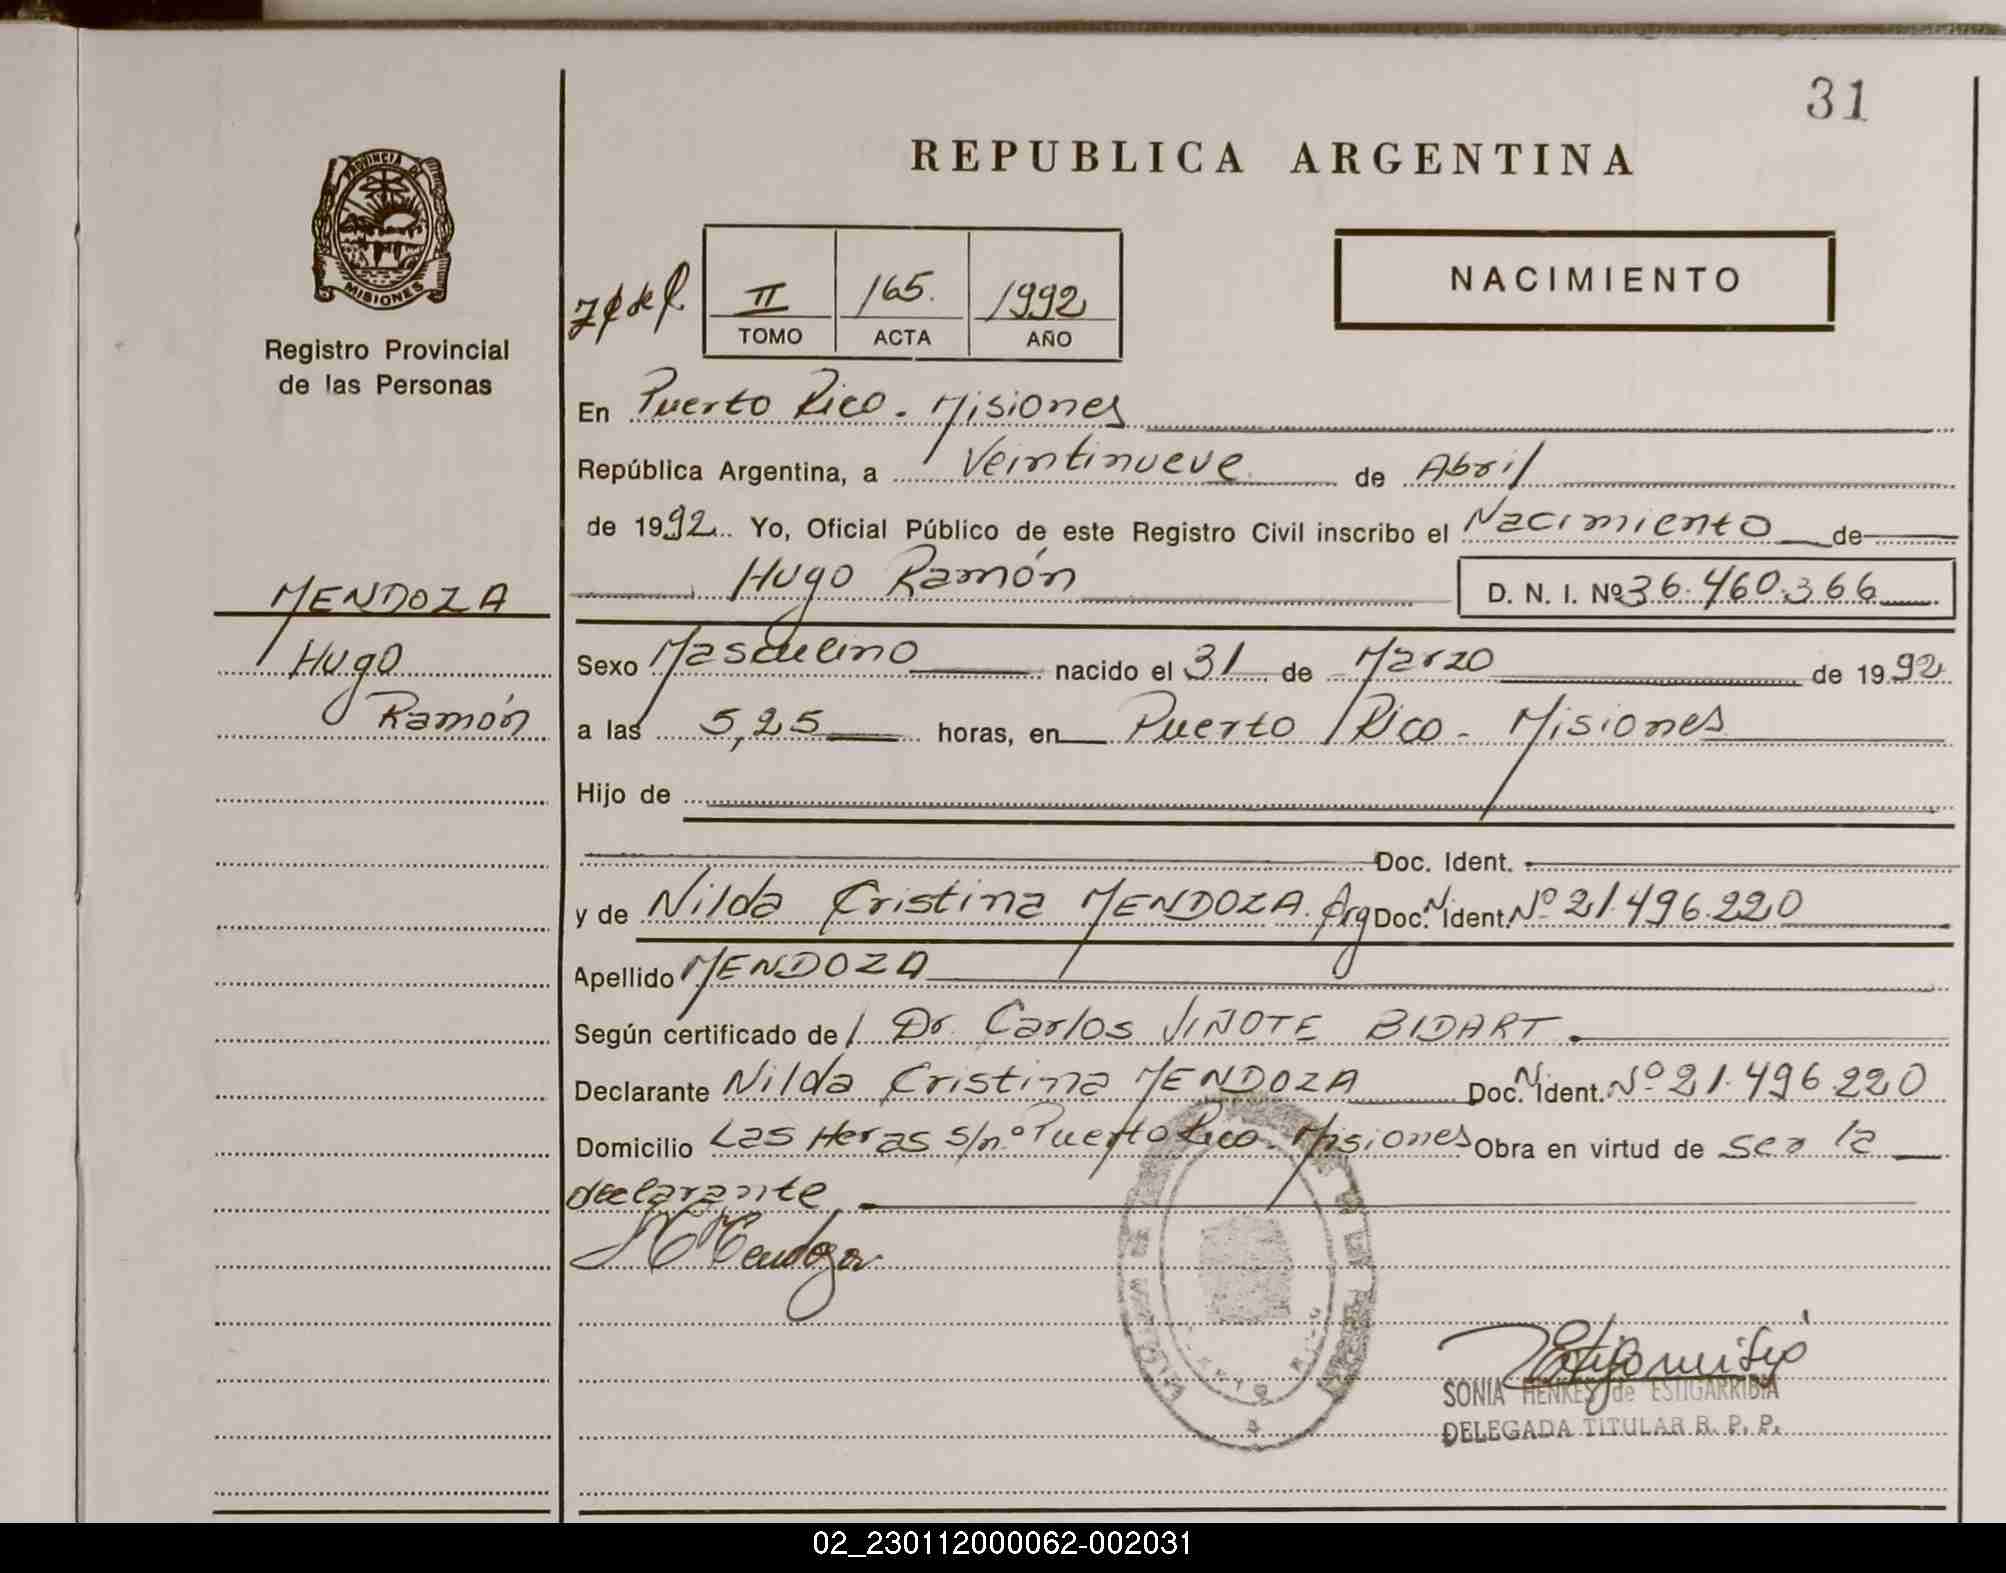 31
REPUBLICA ARGENTINA
PROVINCIA DE
MISIONES
Registro Provincial
de las Personas
II 165. 1992
TOMO ACTA AÑO
NACIMIENTO
En Puerto Rico. Misiones
República Argentina, a Veintinueve de Abril
de 1992 Yo, Oficial Público de este Registro Civil inscribo el Nacimiento de
Hugo Ramón D. N. I. Nº 36.460.366
MENDOZA
Hugo
Ramón
Sexo Masculino nacido el 31 de Marzo de 1992
a las 5,25 horas, en Puerto Rico - Misiones
Hijo de
Doc. Ident.
y de Nilda Cristina MENDOZA. Arg Doc. N. Ident. Nº 21.496.220
Apellido MENDOZA
Según certificado de Dr. Carlos VIÑOTE BIDART.
Declarante Nilda Cristina MENDOZA Doc. N. Ident. Nº 21.496.220
Domicilio Las Heras s/nº Puerto Rico. Misiones Obra en virtud de ser la
declarante
Mendoza
SONIA HENKES de ESTIGARRIBIA
DELEGADA TITULAR R. P. P.
02_230112000062-002031